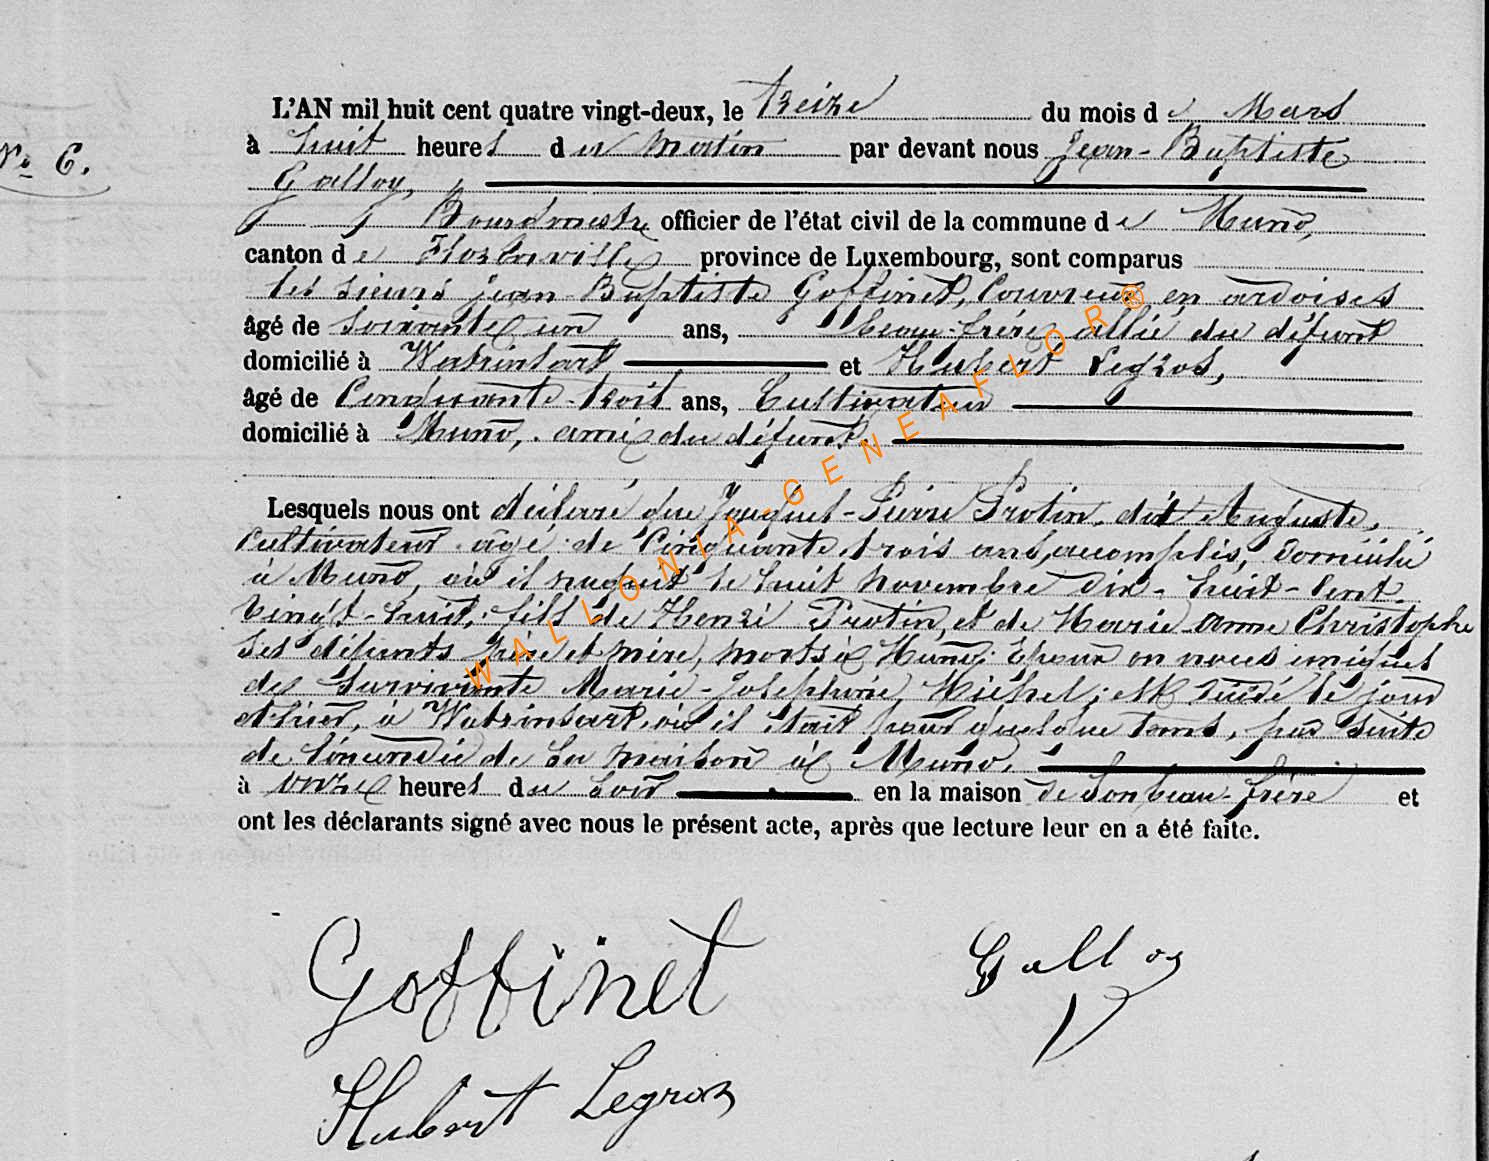 L'AN mil huit cent quatre vingt-deux, le treize du mois de Mars
N° 6.
à huit heures du matin par devant nous Jean-Baptiste
Galloy,
Bourgmestre officier de l'état civil de la commune de Muno,
canton de Florenville province de Luxembourg, sont comparus
les sieurs Jean-Baptiste Goffinet, Couvreur en ardoises
âgé de soixante un ans, beau-frère allié du défunt
domicilié à Watrinsart et Hubert Legros,
âgé de Cinquante-trois ans, Cultivateur
domicilié à Muno, ami du défunt.
Lesquels nous ont déclaré que Jacques-Pierre Protin, dit Auguste,
Cultivateur âgé de Cinquante trois ans, accomplis, domicilié
à Muno, où il naquit le huit novembre dix-huit-cent-
vingt-huit, fils de Henri Protin, et de Marie-Anne Christophe
ses défunts père et mère, morts à Muno; Epoux en noces uniques
de survivante Marie-Joséphine Michel; est décédé le jour
d'hier, à Watrinsart, où il était pour quelque tems, par suite
de l'incendie de sa maison à Muno.
à onze heures du soir en la maison de son beau-frère et
ont les déclarants signé avec nous le présent acte, après que lecture leur en a été faite.
Goffinet
Galloy
Hubert Legros
WALLONIA-GENEAFLOR®